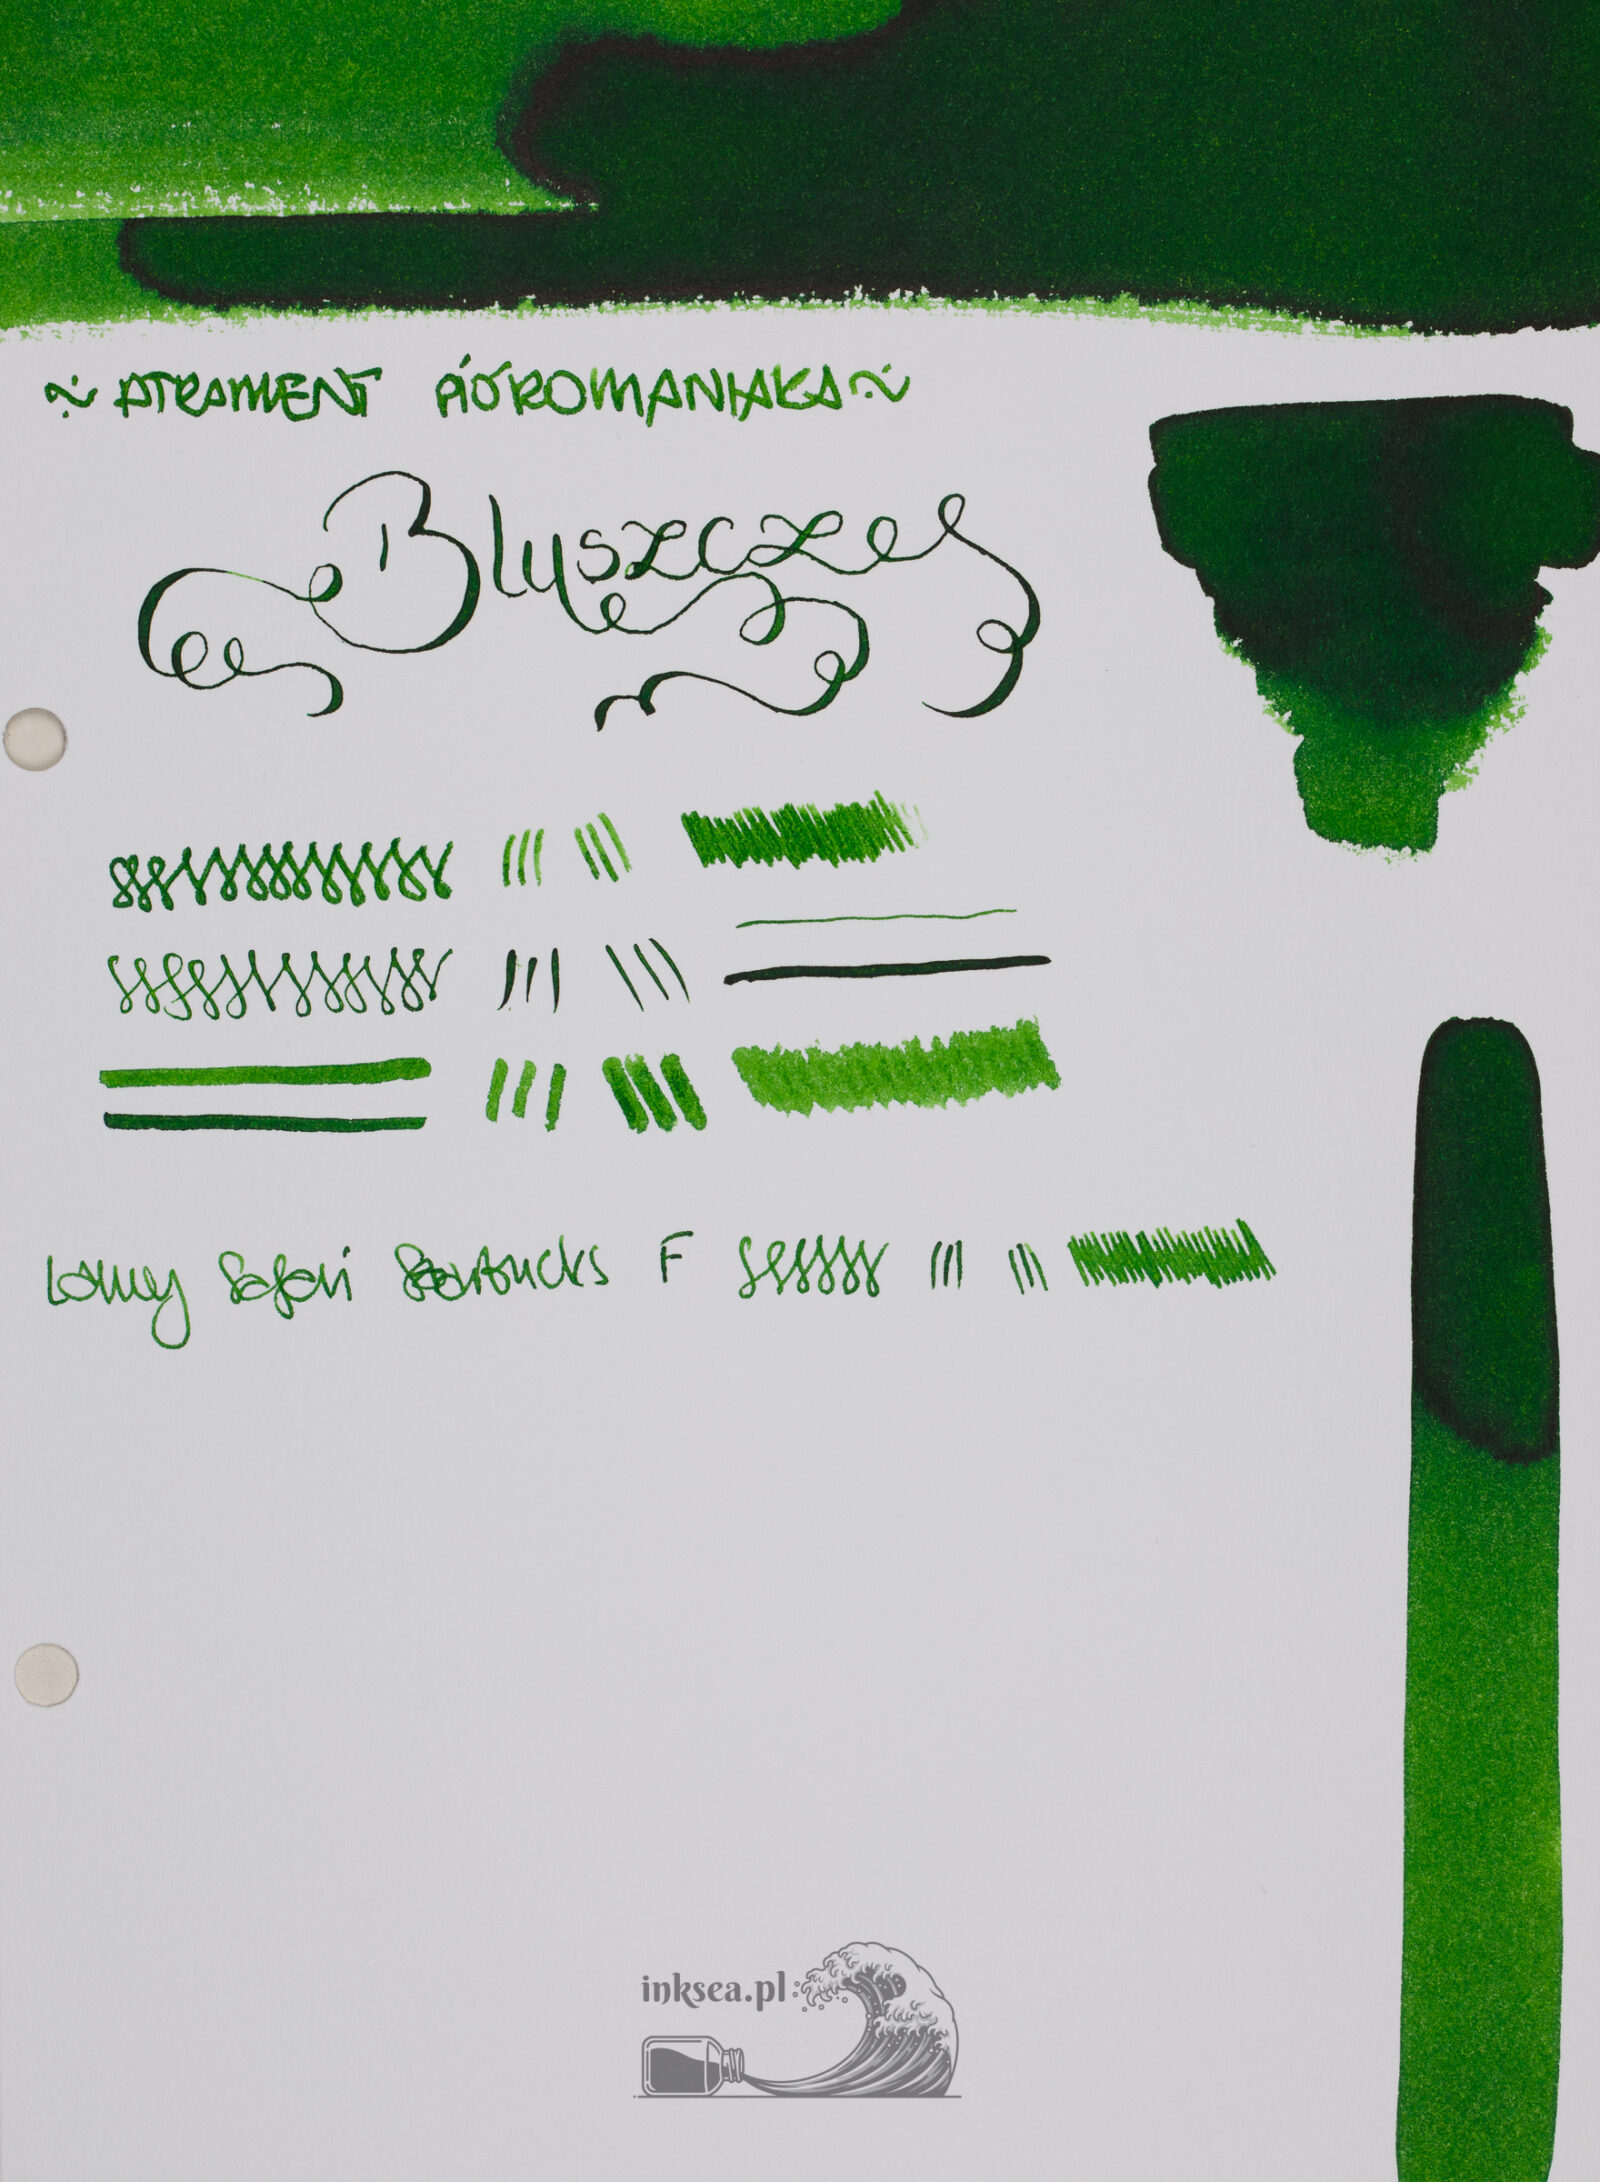 ~ ATRAMENT PIÓROMANIAKA ~
Bluszcze
Lamy Safari Starbucks F
inksea.pl